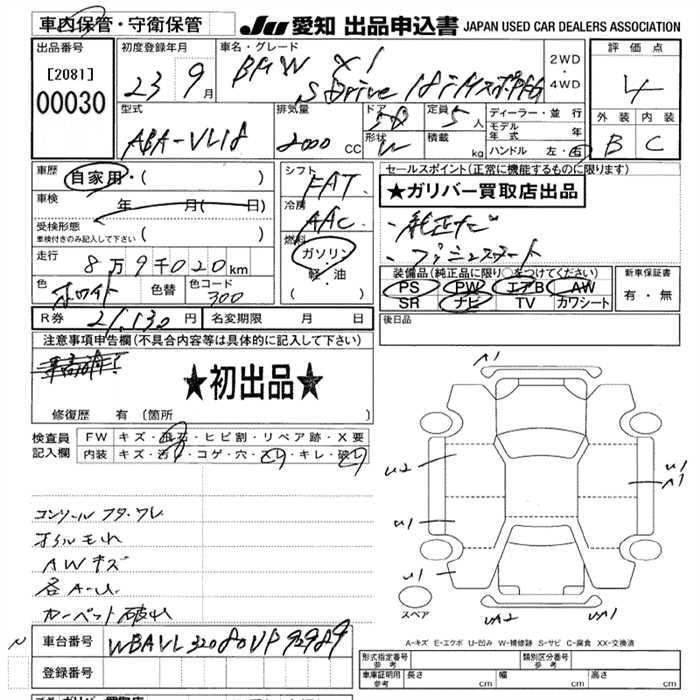 車内保管・守衛保管
JU 愛知 出品申込書 JAPAN USED CAR DEALERS ASSOCIATION
出品番号
[2081]
00030
初度登録年月
23 9月
車名・グレード
BMW X1
S Drive 18i
2WD
・
4WD
評価点
4
外装 内装
B C
型式
ABA-VL18
排気量
2000 CC
ドア
5D
形状
W
定員
5人
積載
kg
ディーラー・並行
モデル年式 年
ハンドル 左・右
車歴
自家用・( )
車検
年 月( 日)
受検形態
車検付きのみ記入して下さい
( )
走行
8万9千020km
色
ホワイト
色替
色コード
300
シフト
FAT
冷房
AAC
燃料
ガソリン
軽・油
( )
セールスポイント(正常に機能するものに限ります)
★ガリバー買取店出品
・純正ナビ
・プッシュスタート
装備品(純正品に限り○をつけてください)
PS PW エアB AW
SR ナビ TV カワシート
新車保証書
有・無
後日品
R券 21,130円 名変期限 月 日
注意事項申告欄(不具合内容等は具体的に記入して下さい)
★初出品★
修復歴 有(箇所 )
検査員
記入欄
FW キズ・飛石・ヒビ割・リペア跡・X要
内装 キズ・汚れ・コゲ・穴・スレ・キレ・破れ
コンソールフタ・ワレ
オイルモレ
AWキズ
各A・U
カーペット破れ
A1
U2
U1
A1
U1
U1
UA2
UA1
スペア
A-キズ E-エクボ U-凹み W-補修跡 S-サビ C-腐食 XX-交換済
N
車台番号 WBAVL32080VP92989
登録番号
型式指定番号
参考
類別区分番号
参考
車庫証明用
参考
長さ cm 幅 cm 高さ cm